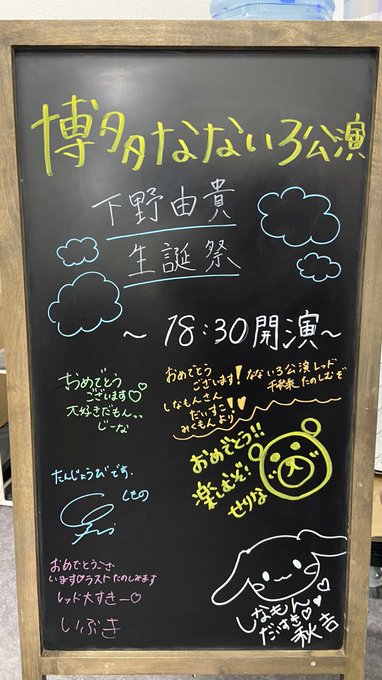 博多なないろ公演
下野由貴
生誕祭
~18:30開演~
おめでとう
ございます♡
大好きだもん、、
じーな
おめでとう
ございます!
しなもんさん
だいすこ
みくもんより♡
なないろ公演レッド
千秋楽たのしむぞ
おめでとう!!
楽しむぞ!
せりな
たんじょうびです。
しもの
おめでとうござ
います♡ラストたのしみます
レッド大すきー♡
いぶき
しなもん
だいすき♡
秋吉